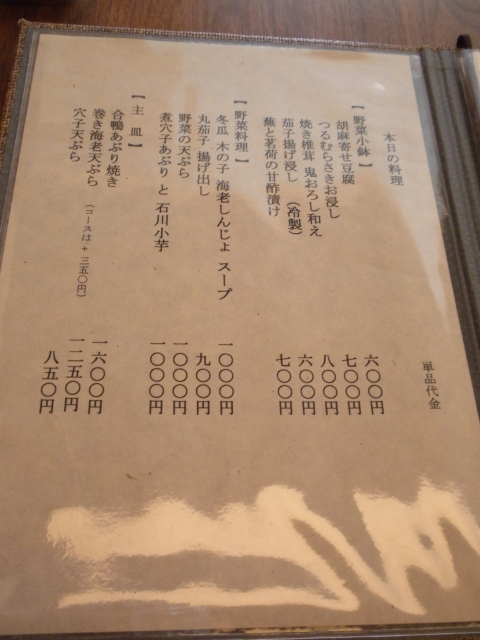 本日の料理
単品代金
【 野菜小鉢 】
胡麻寄せ豆腐 六〇〇円
つるむらさきお浸し 七〇〇円
焼き椎茸 鬼おろし和え 八〇〇円
茄子揚げ浸し (冷製) 六〇〇円
蕪と茗荷の甘酢漬け 七〇〇円
【 野菜料理 】
冬瓜 木の子 海老しんじょ スープ 一〇〇〇円
丸茄子 揚げ出し 九〇〇円
野菜の天ぷら 一〇〇〇円
煮穴子あぶり と 石川小芋 一〇〇〇円
【 主 皿 】
合鴨あぶり焼き 一六〇〇円
巻き海老天ぷら (コースは+三五〇円) 一二五〇円
穴子天ぷら 八五〇円